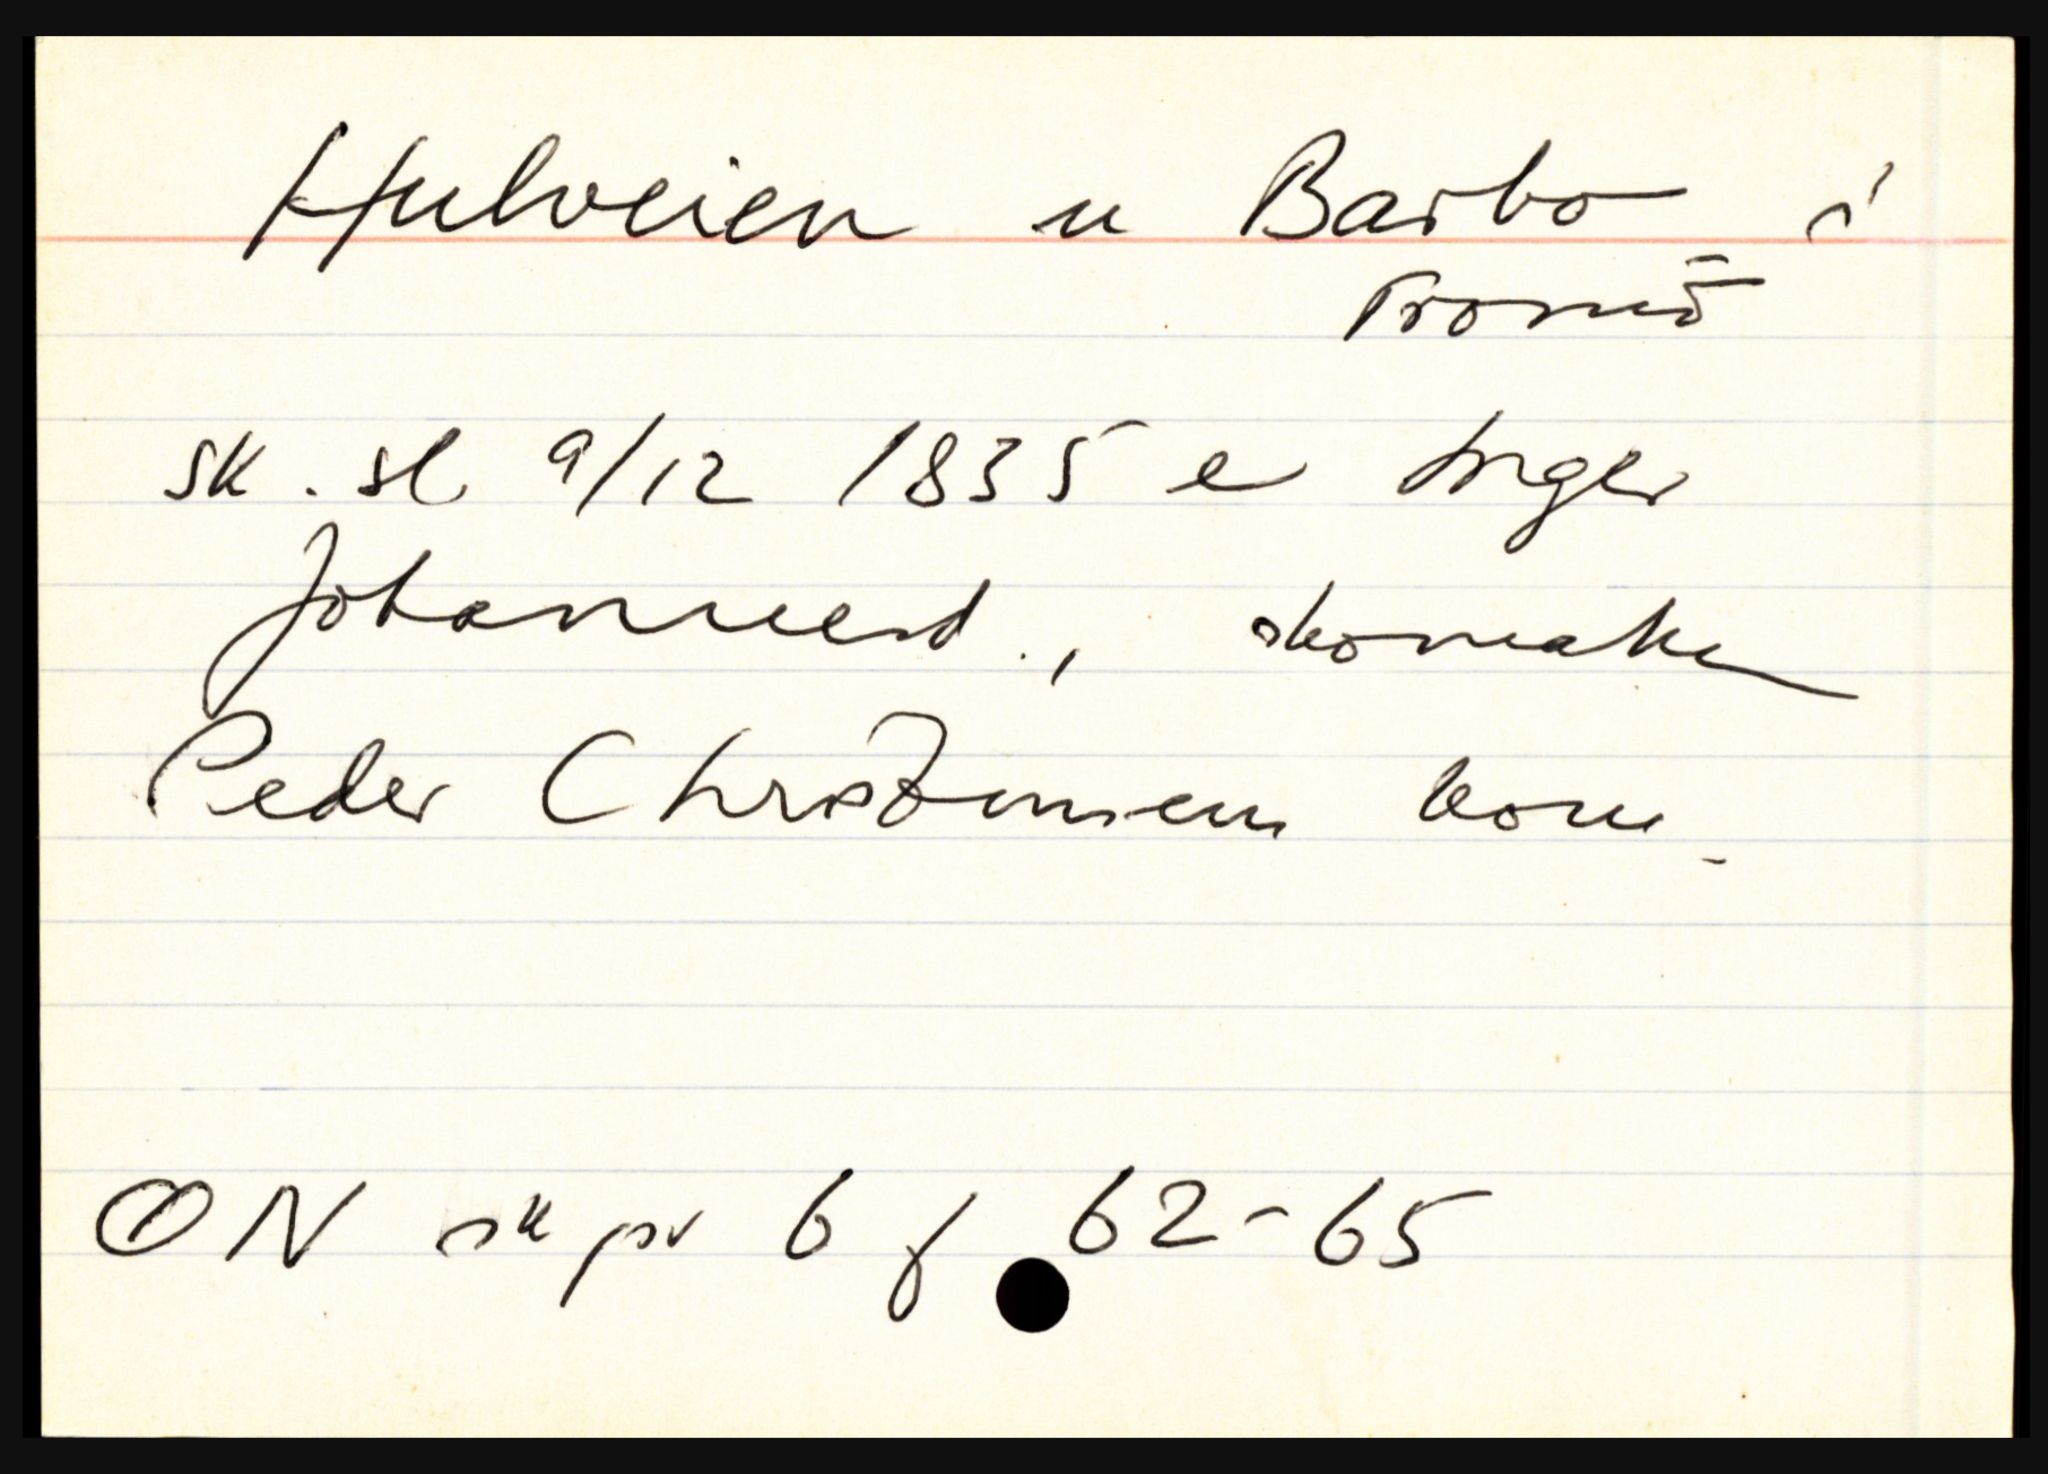 Hulveien u Barbo i
Tromö
sk. sl 9/12 1835 e Inger
Johannesd., skomaker
Peder Christensens kone
ØN sk pr 6 f 62-65